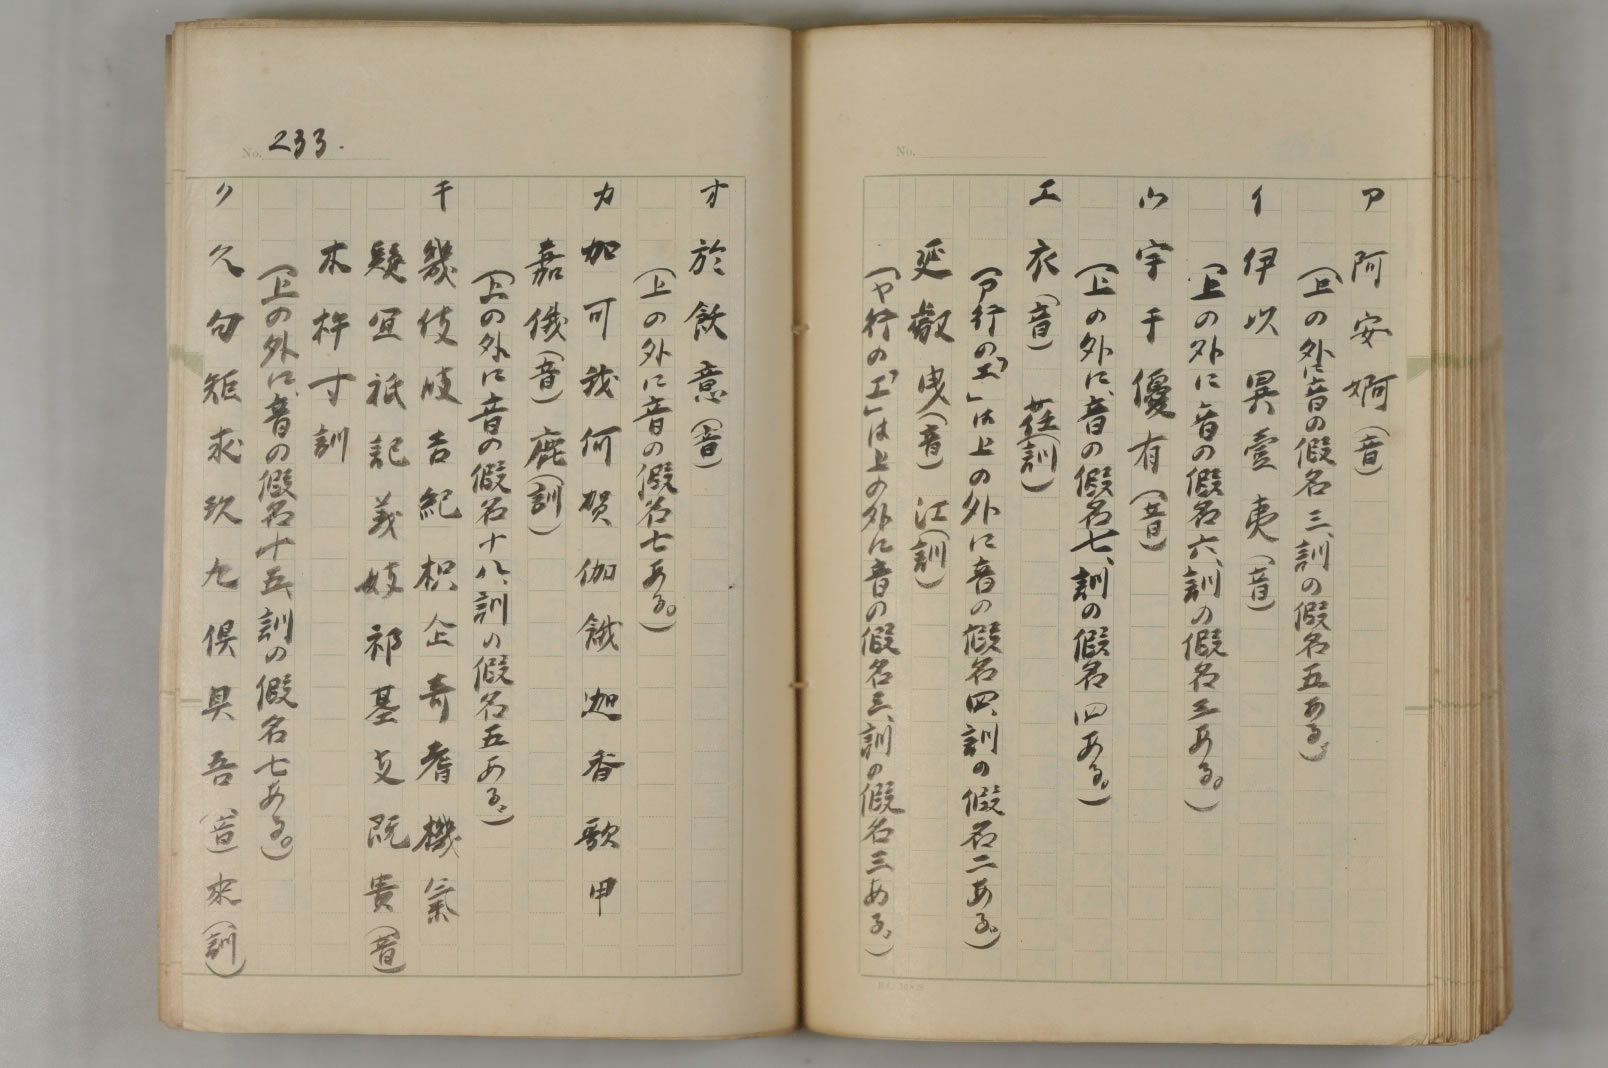 No.
ア 阿安婀(音)
(上の外に音の假名三、訓の假名五ある。)
イ 伊以異壹夷(音)
(上の外に音の假名六、訓の假名三ある。)
ウ 宇于優有(音)
(上の外に、音の假名七、訓の假名四ある。)
エ 衣(音) 荏(訓)
(ア行の「エ」は上の外に音の假名四、訓の假名二ある。)
延叡曳(音) 江(訓)
(ヤ行の「エ」は上の外に音の假名三、訓の假名三ある。)
No. 233.
オ 於飫意(音)
(上の外に音の假名七ある。)
カ 加可我何賀伽餓迦香歌甲
嘉俄(音)鹿(訓)
(上の外に音の假名十八、訓の假名五ある。)
キ 幾伎岐吉紀枳企奇耆機氣
疑宜祇記義妓祁基支既貴(音)
木杵寸訓
(上の外に、音の假名十五、訓の假名七ある。)
ク 久勾矩求玖九倶具吾(音)來(訓)